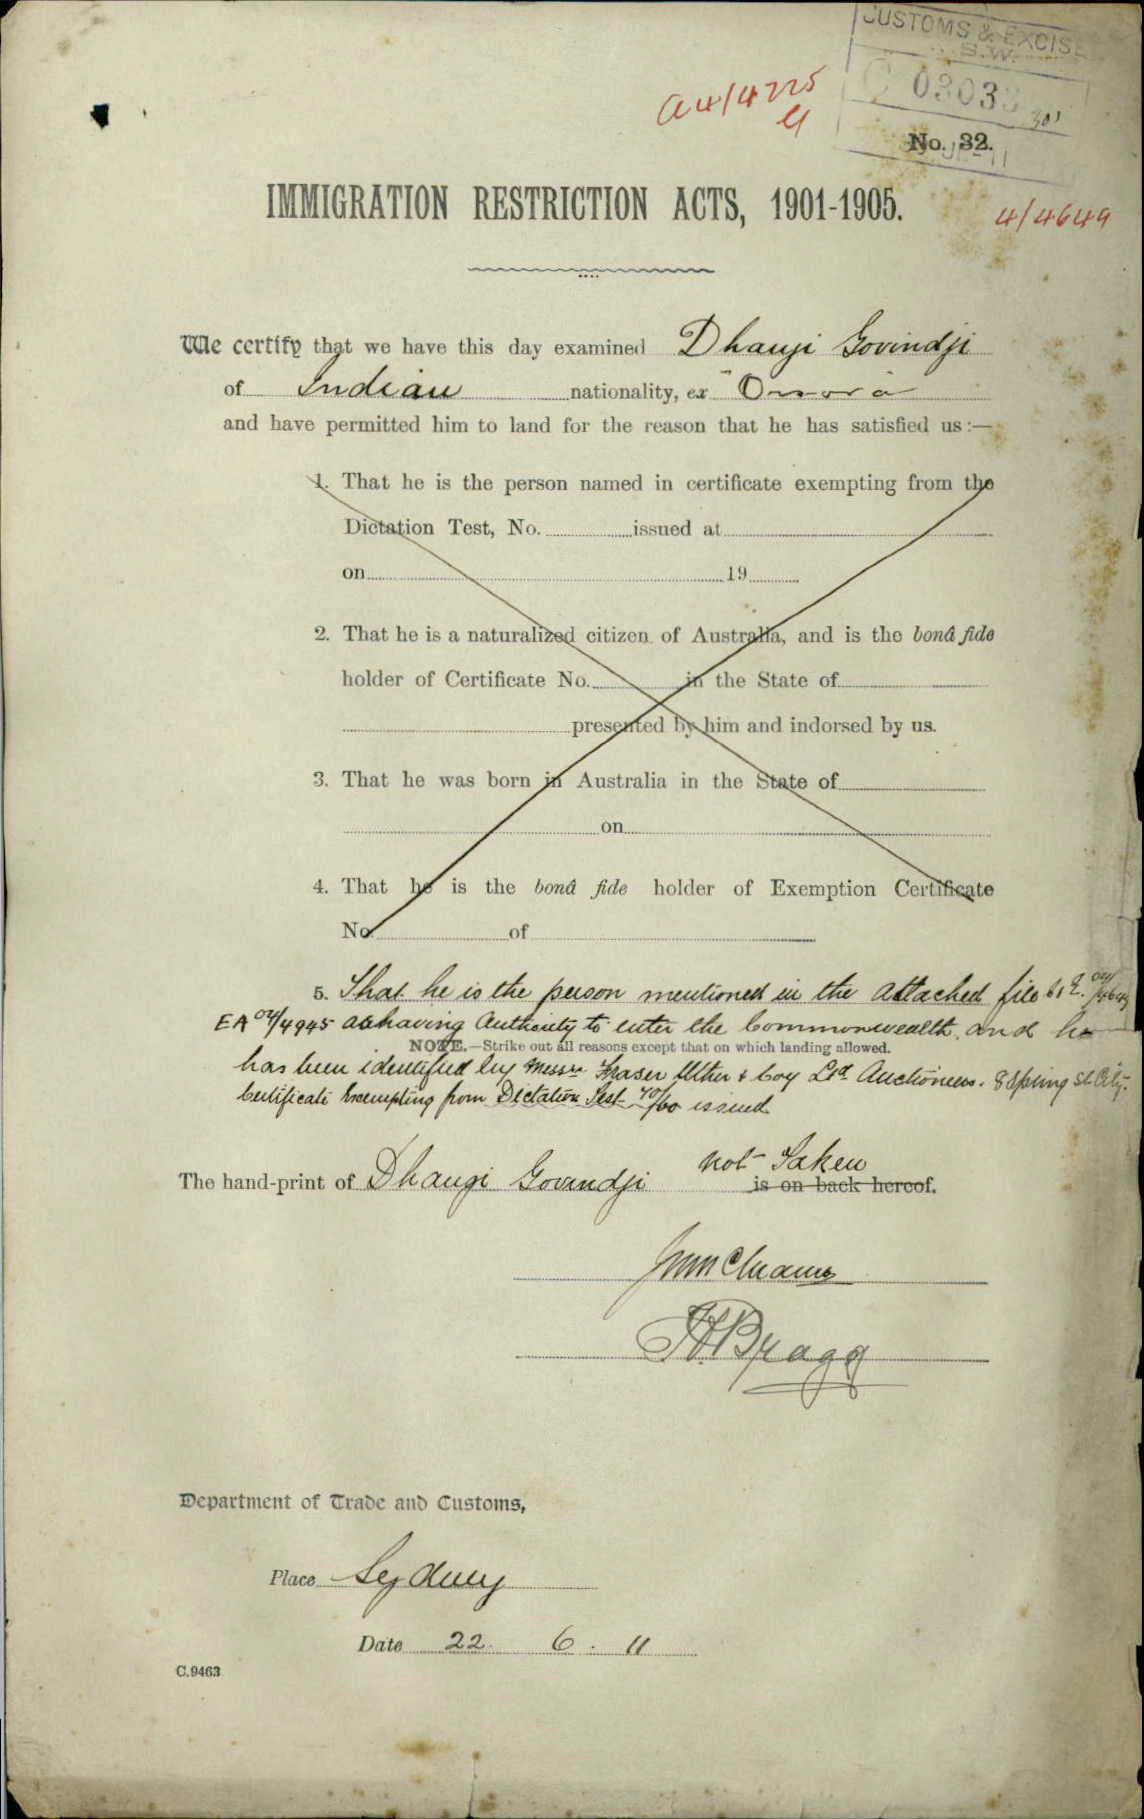 CUSTOMS & EXCISE
S.W.
03033
30'
No. 32.
a4/4225
IMMIGRATION RESTRICTION ACTS, 1901-1905.
4/4649
We certify that we have this day examined Dhanji Govindji
of Indian nationality, ex "Omora
and have permitted him to land for the reason that he has satisfied us:—
1. That he is the person named in certificate exempting from the
Dictation Test, No. issued at
on 19
2. That he is a naturalized citizen of Australia, and is the bonâ fide
holder of Certificate No. in the State of
presented by him and indorsed by us.
3. That he was born in Australia in the State of
on
4. That he is the bonâ fide holder of Exemption Certificate
No. of
5. That he is the person mentioned in the attached file
EA 04/4945 as having Authority to enter the Commonwealth, and he
NOTE.—Strike out all reasons except that on which landing allowed.
has been identified by Messrs Fraser Uther & Coy Ltd Auctioneers. 8 Spring St City.
Certificate Exempting from Dictation Test 40/60 issued
not Taken
The hand-print of Dhangi Govindji is on back hereof.
Bragg
Department of Trade and Customs,
Place Sydney
Date 22. 6. 11
C.9463